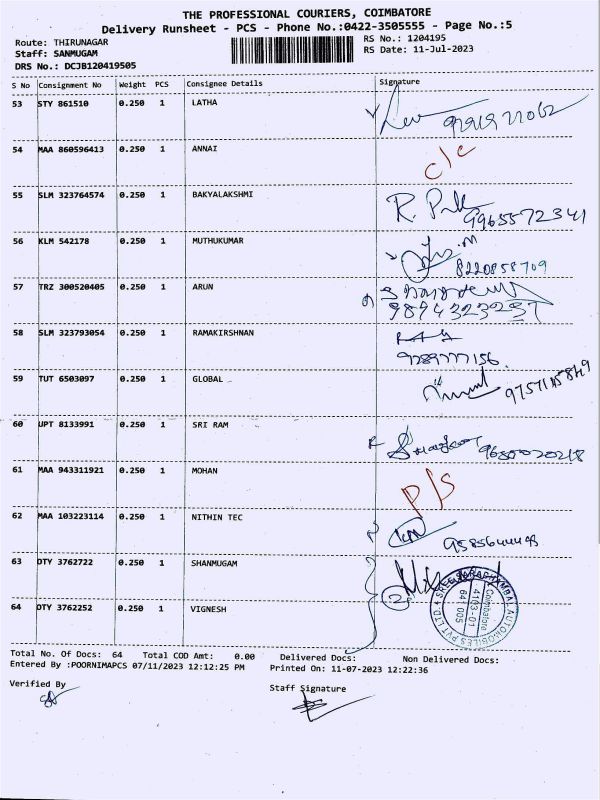 THE PROFESSIONAL COURIERS, COIMBATORE
Delivery Runsheet - PCS - Phone No.:0422-3505555 - Page No.:5
Route: THIRUNAGAR RS No.: 1204195
Staff: SANMUGAM RS Date: 11-Jul-2023
DRS No.: DCJB120419505
S No Consignment No Weight PCS Consignee Details Signature
53 STY 861510 0.250 1 LATHA
54 MAA 860596413 0.250 1 ANNAI c/c
55 SLM 323764574 0.250 1 BAKYALAKSHMI 9965572341
56 KLM 542178 0.250 1 MUTHUKUMAR 8220858709
57 TRZ 300520405 0.250 1 ARUN 9894323237
58 SLM 323793054 0.250 1 RAMAKIRSHNAN
9289777156
59 TUT 6503097 0.250 1 GLOBAL
60 UPT 8133991 0.250 1 SRI RAM
61 MAA 943311921 0.250 1 MOHAN P/S
62 MAA 103223114 0.250 1 NITHIN TEC
63 DTY 3762722 0.250 1 SHANMUGAM
64 DTY 3762252 0.250 1 VIGNESH
Total No. Of Docs: 64 Total COD Amt: 0.00 Delivered Docs: Non Delivered Docs:
Entered By :POORNIMAPCS 07/11/2023 12:12:25 PM Printed On: 11-07-2023 12:22:36
Verified By Staff Signature